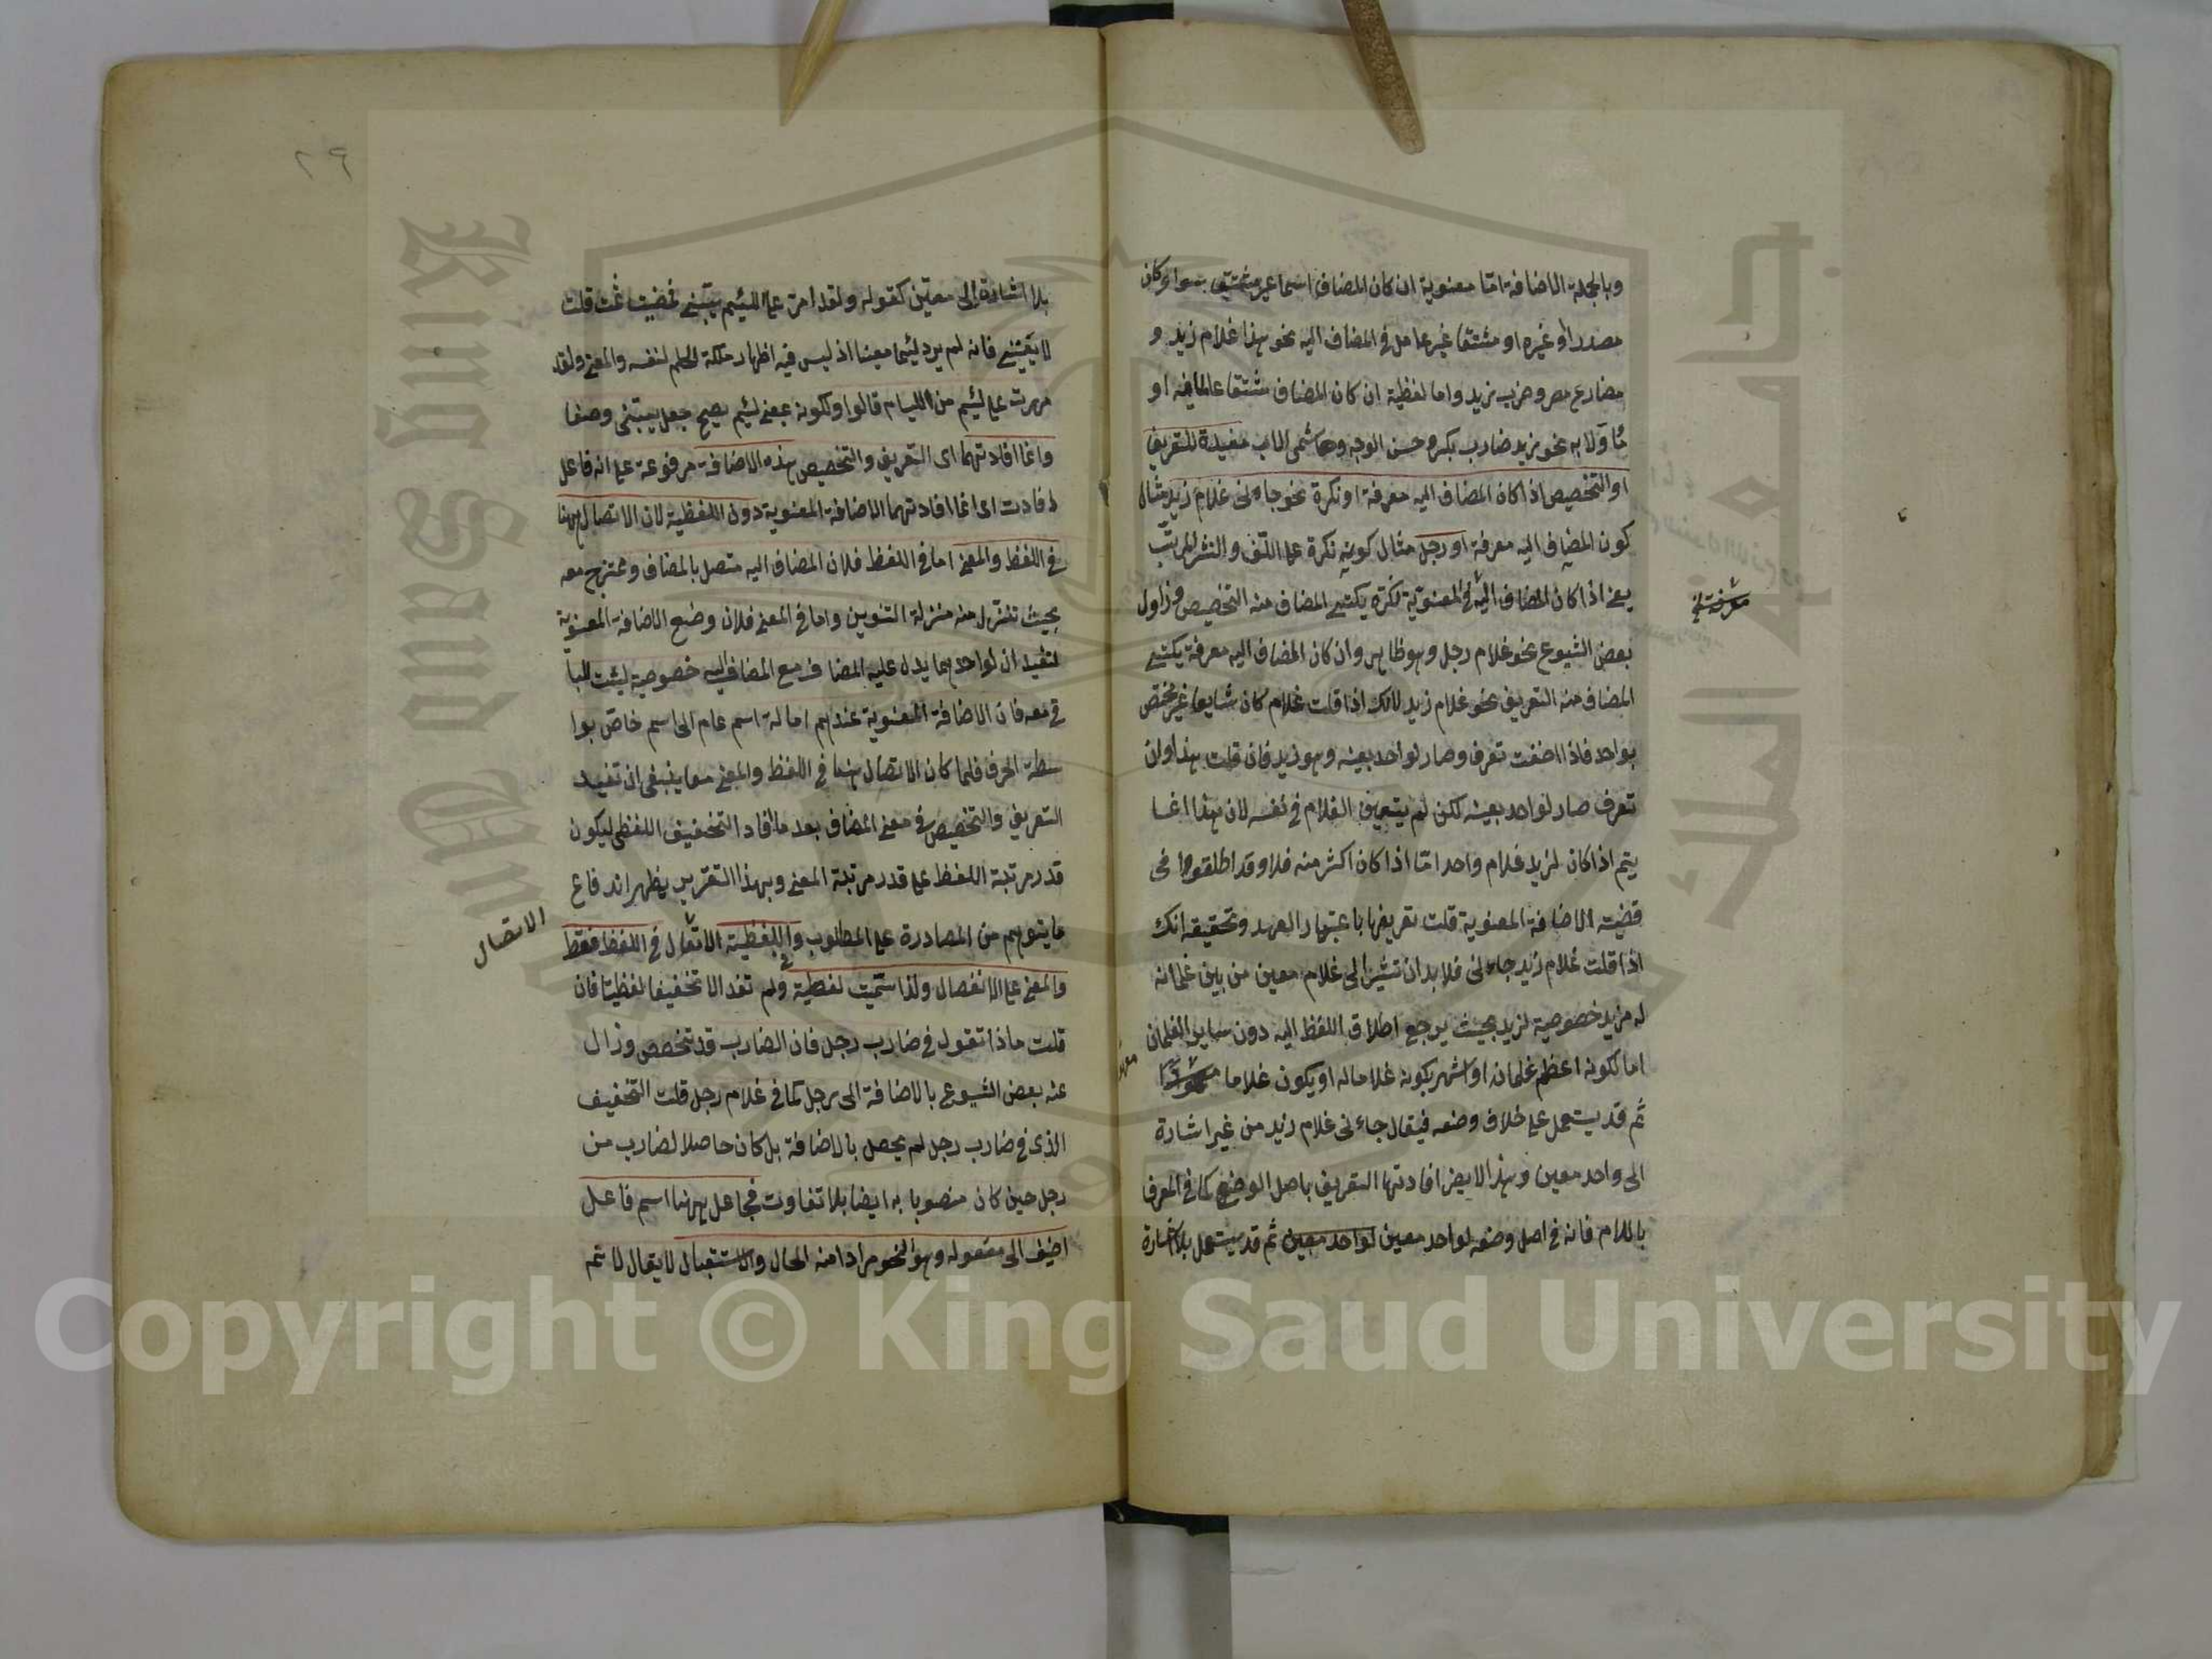 وبالجملة الاضافة امّا معنوية ان كان المضاف اسما غير مشتق سواء كان
مصدرا او غيره او مشتقا غير عامل في المضاف اليه نحو هذا غلام زيد و
مضارع مصر وضرب زيد واما لفظية ان كان المضاف مشتقا عاملا فيه او
مأولا به نحو زيد ضارب بكر وحسن الوجه وهاشمى الاب مفيدة للتعريف
او التخصيص اذا كان المضاف اليه معرفة او نكرة نحو جاءنى غلام زيد مثال
كون المضاف اليه معرفة او رجل مثال كونه نكرة على اللف والنشر المرتب
يعنى اذا كان المضاف اليه فى المعنوية نكرة يكتسى المضاف منه التخصيص وزاول
بعض الشيوع نحو غلام رجل وهو ظاهر وان كان المضاف اليه معرفة يكتسى
المضاف منه التعريف نحو غلام زيد لانك اذا قلت غلام كان شايعا غير مختص
بواحد فاذا اضفت تعرف وصار لواحد بعينه وهو زيد فان قلت هذا وان
تعرف صار لواحد بعينه لكن لم يتعين الغلام في نفسه لان هذا انما
يتم اذا كان لزيد غلام واحد امّا اذا كان اكثر منه فلا وقد اطلقوا فى
قضية الاضافة المعنوية قلت تعريفها باعتبار العهد وتحقيقه انك
اذا قلت غلام زيد جاءنى فلا بد ان تشير الى غلام معين من بين غلمانه
له مزيد خصوصية لزيد بحيث يرجع اطلاق اللفظ اليه دون ساير الغلمان
اما لكونه اعظم غلمانه او اشهر بكونه غلاما له او يكون غلاما
ثم قد يستعمل على خلاف وضعه فيقال جاءنى غلام زيد من غير اشارة
الى واحد معين وهذا لا يضر افادتها التعريف باصل الوضع كما في المعرف
باللام فانه في اصل وضعه لواحد معين لواحد معين ثم قد يستعمل بلا اشارة
٢٩
بلا اشارة الى معين كقوله ولقد امر على اللئيم يسبنى فمضيت ثمت قلت
لا يعنينى فانه لم يرد لئيما معينا اذ ليس فيه اظهار ملكة الحلم لنفسه والمعنى ولقد
مررت على لئيم من اللئيام قالوا ولكونه بمعنى لئيم يصح جعل يسبنى وصفا
وانما افادتهما اى التعريف والتخصيص هذه الاضافة مرفوعة على انه فاعل
لافادت اى انما افادتهما الاضافة المعنوية دون اللفظية لان الاتصال ههنا
في اللفظ والمعنى اما في اللفظ فلان المضاف اليه متصل بالمضاف وممتزج معه
بحيث تنزل منه منزلة التنوين واما في المعنى فلان وضع الاضافة المعنوية
لتفيد ان لواحد مما يدل عليه المضاف مع المضاف اليه خصوصية ليست للبا
قى معه فان الاضافة المعنوية عندهم امالة اسم عام الى اسم خاص بوا
سطة الحرف فلما كان الاتصال ههنا في اللفظ والمعنى معا ينبغى ان تفيد
التعريف والتخصيص في معنى المضاف بعد ما افاد التخفيف اللفظى ليكون
قدر مرتبة اللفظ على قدر مرتبة المعنى وبهذا التقرير يظهر اندفاع
ما يتوهم من المصادرة على المطلوب واللفظية الاتصال في اللفظ فقط
الاتصال
والمعنى على الانفصال ولذا سمّيت لفظية ولم تفد الا تخفيفا لفظيا فان
قلت ماذا تقول في ضارب رجل فان الضارب قد تخصص وزال
عنه بعض الشيوع بالاضافة الى رجل كما في غلام رجل قلت التخفيف
الذى في ضارب رجل لم يحصل بالاضافة بل كان حاصلا لضارب من
رجل حين كان منصوبا به ايضا بلا تفاوت فجاعل ههنا اسم فاعل
اضيف الى مفعوله وهو النحو مرادا منه الحال والاستقبال لا يقال لا تم
Copyright © King Saud University